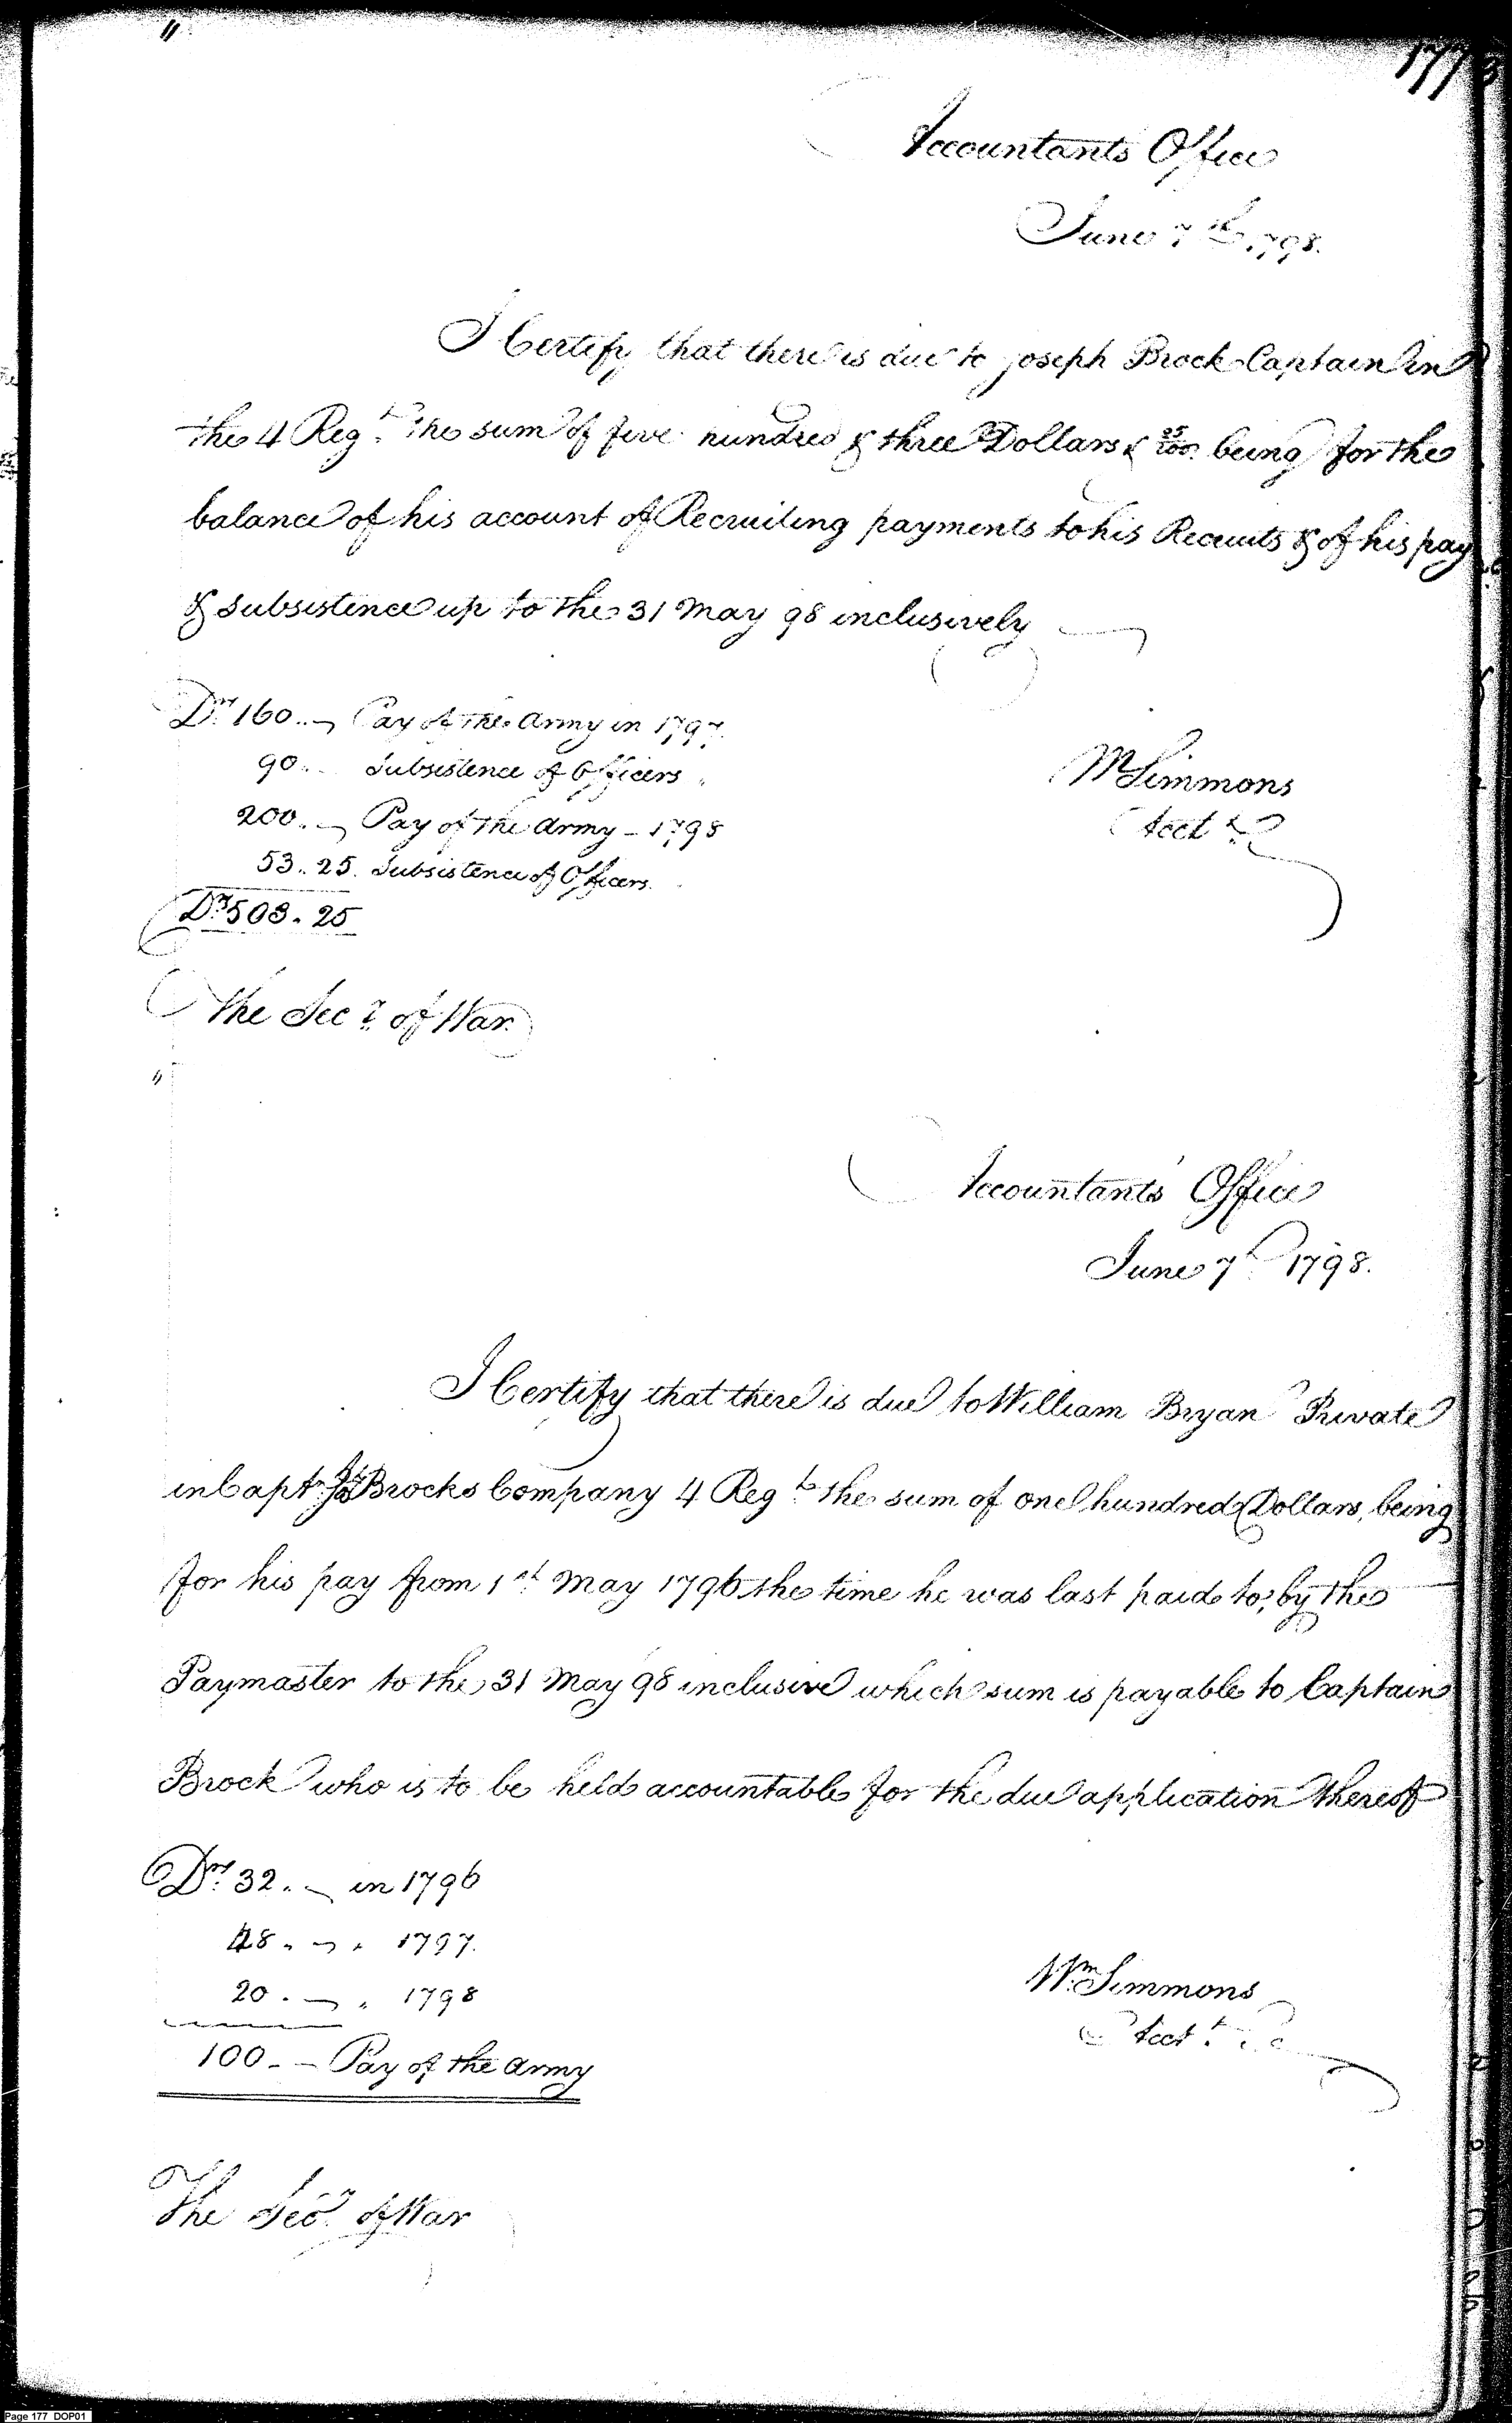 177
Accountants Office
June 7th 1798.
I Certify that there is due to Joseph Brock Captain in
the 4 Regt. the sum of five hundred & three Dollars & 25/100 being for the
balance of his account of Recruiting payments to his Recruits & of his pay
& subsistence up to the 31 May 98 inclusively
Drs. 160.. Pay of the Army in 1797.
90.. Subsistence of Officers "
200.. Pay of the Army - 1798
53.. 25. Subsistence of Officers.
Drs. 503. 25
Wm Simmons
Acct.
The Secy. of War.
Accountants' Office
June 7th 1798.
I Certify that there is due to William Bryan Private
in Capt. Jos Brocks Company 4 Regt. the sum of one hundred Dollars, being
for his pay from 1st May 1796 the time he was last paid to, by the
Paymaster to the 31 May 98 inclusive which sum is payable to Captain
Brock who is to be held accountable for the due application thereof
Drs. 32. - in 1796
48. - " 1797.
20. - " 1798
100 - - Pay of the Army
Wm. Simmons
Acct.
The Secy. of War
Page 177 DOP01